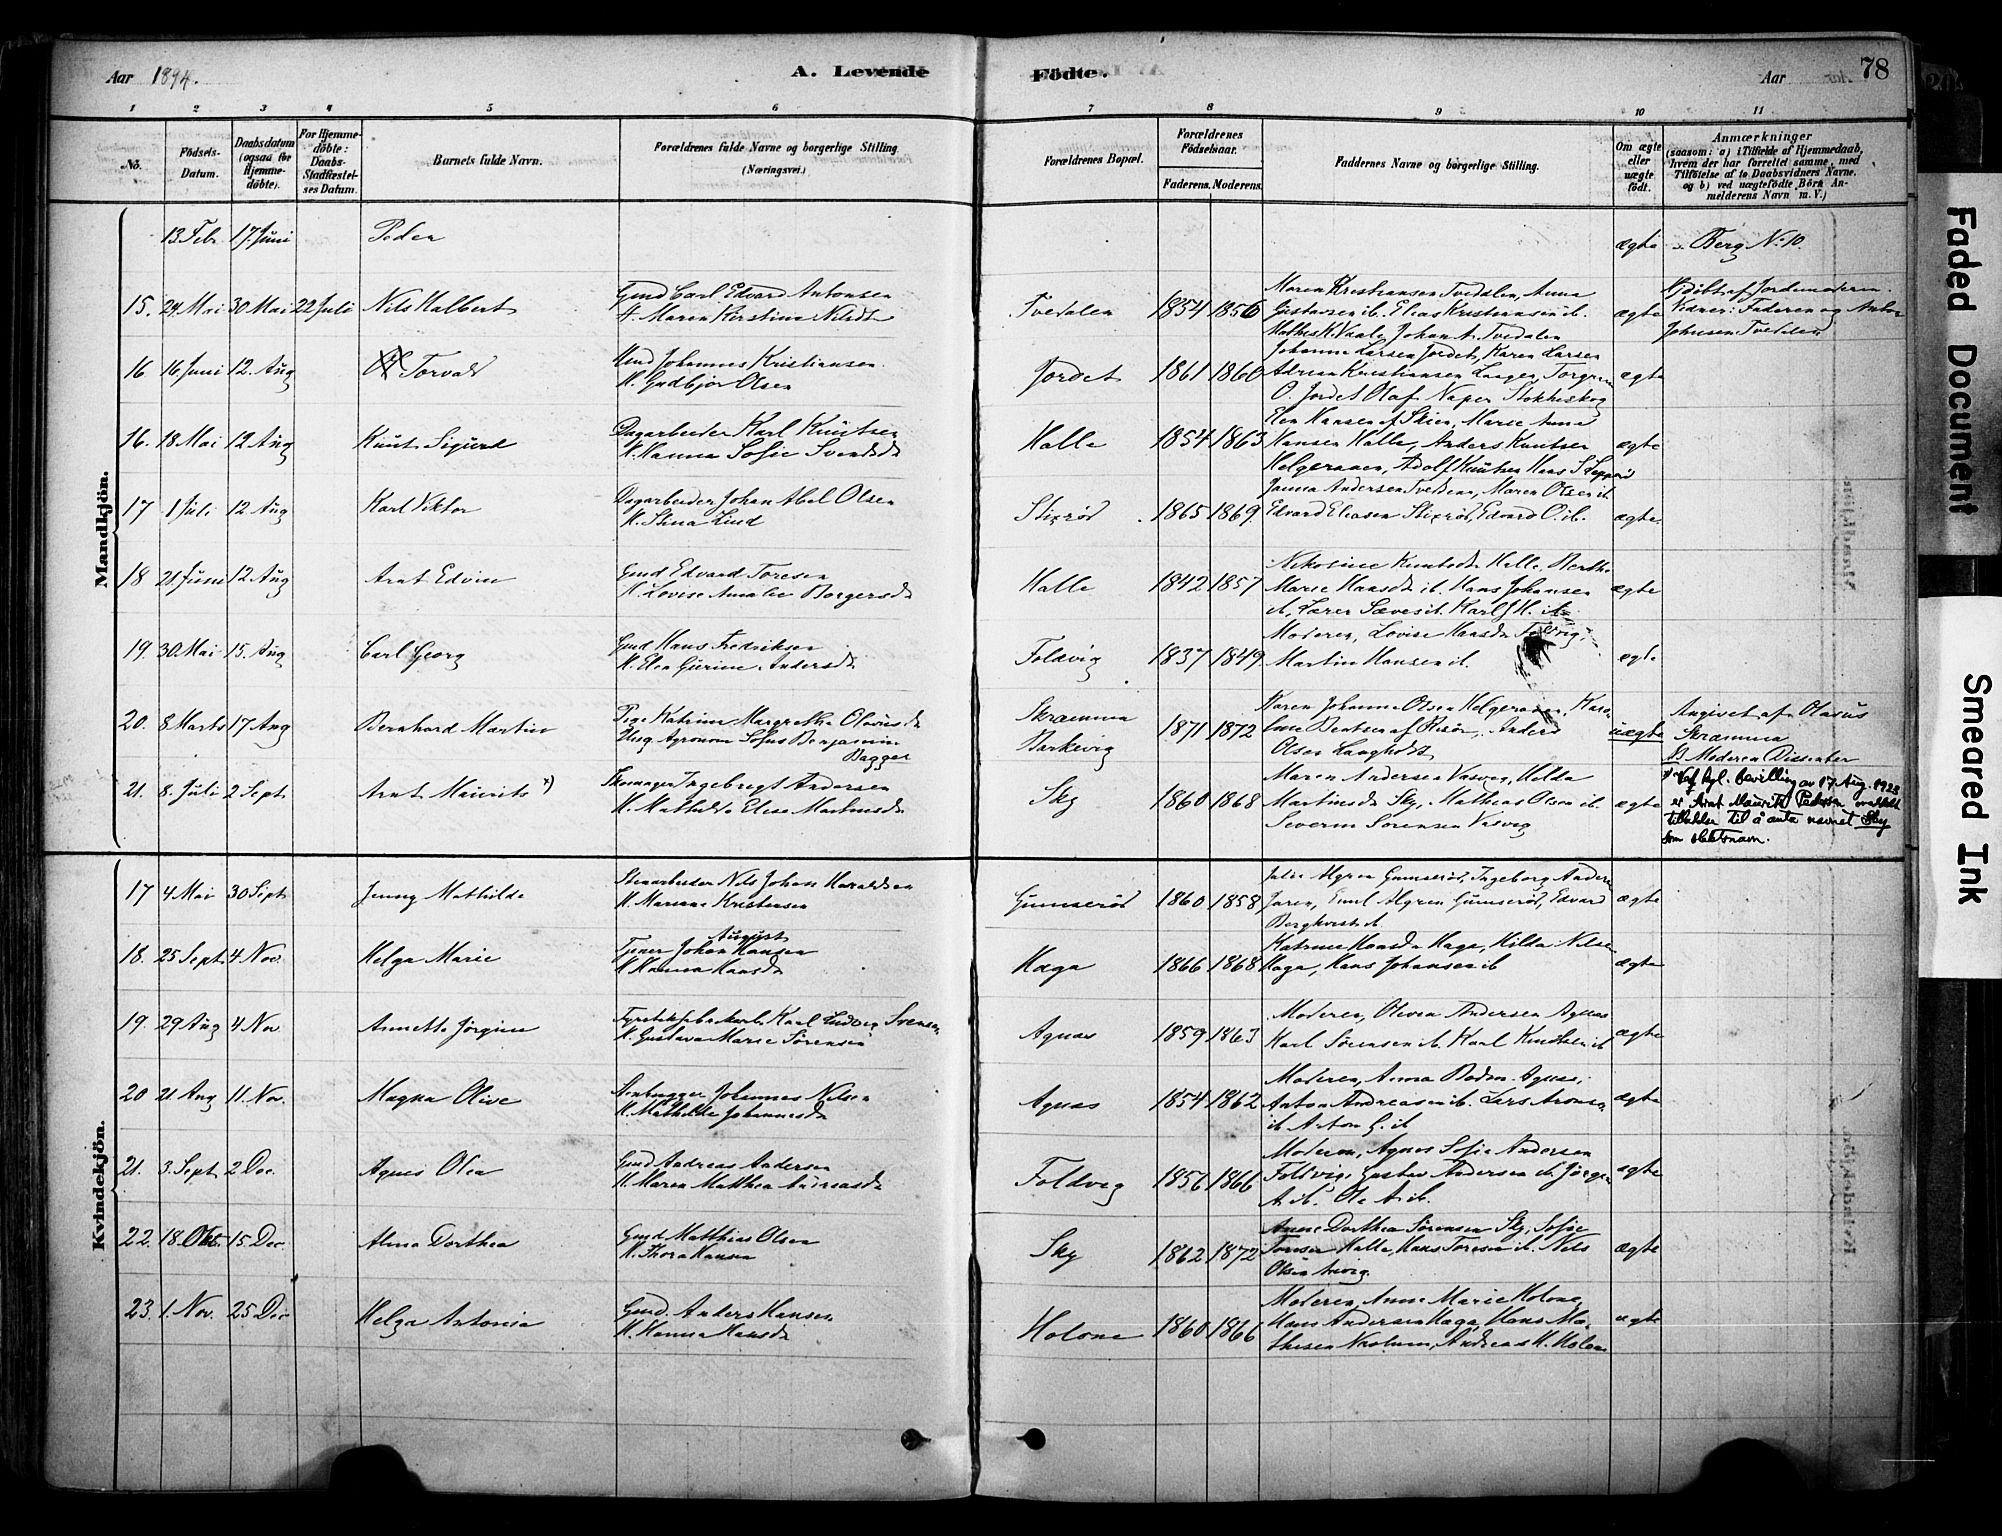 Aar 1894. A. Levende Födte. Aar 78
1 2 3 4 5 6 7 8 9 10 11
No. Födsels-Datum. Daabsdatum (ogsaa for Hjemmedöbte). For Hjemmedöbte: Daabs-Stadfæstelses Datum. Barnets fulde Navn. Forældrenes fulde Navne og borgerlige Stilling. (Næringsvei.) Forældrenes Bopæl. Forældrenes Födselsaar. Faderens. Moderens. Faddernes Navne og borgerlige Stilling. Om ægte eller uægte födt. Anmærkninger (saasom: a) i Tilfælde af Hjemmedaab, hvem der har forrettet samme, med Tilföielse af to Daabsvidners Navne. og b) ved uægtefödte Börn Anmelderens Navn m. V.)
Mandkjön.
13 Febr 17 Juni Peder ægte Berg No 10
15. 29 Mai 30 Mai 22 Juli Nils Halbert Gmd Carl Edvard Antonsen
H. Maren Kirstine Nilsdt Tvedalen 1854 1856 Maren Kristiansen Tvedalen, Anna
Gustavsen ib. Elias Kristiansen ib.
Johan A. Tvedalen ægte Hjdøbt af Jordemoderen.
Vidner: Faderen og Anton
Johnsen Tvedalen
16 16 Juni 12. Aug Torvald Gmd Johannes Kristiansen
H. Gudbjør Olsen Jordet 1861 1860 Johanne Larsen Jordet, Karen Larsen
Adrian Kristiansen Langen, Torgrim
O. Jordet Olaf Naper Stokkeskog ægte
16. 18 Mai 12 Aug Knut Sigurd Dagarbeider Karl Knutsen
H. Hanna Sofie Svendsdt Halle 1854 1863 Elen Hansen af Skien, Marie Anna
Hansen Halle, Anders Knutsen
Helgeraaen, Adolf Knutsen ægte
17 1 Juli 12 Aug Karl Viktor Dagarbeider Johan Abel Olsen
H. Stina Lind Stixrød 1865 1869. Janna Andersen Tvedene, Maren Olsen ib.
Edvard Eliasen Stixrød, Edvard O. ib. ægte.
18 21. Juni 12 Aug Arnt Edvin Gmd Edvard Toresen
H. Lovise Amalie Borgersdt Halle 1842 1857 Nikoline Knutsdt Halle, Berthe
Marie Hansdt ib. Hans Johansen
ib. Lærer Sæves ib. Karl H. ib. ægte
19. 30 Mai 15. Aug Carl Georg Gmd Hans Fredriksen
H. Elen Gurine Andersdt Foldvig 1837 1849 Moderen, Lovise Hansdt Foldvig,
Martin Hansen ib. ægte
20. 8 Marts 17 Aug Bernhard Martin Pige Katrine Margrethe Olavusdt
Ugg. Agronom Sofus Benjamin
Bagger Skramma
Barkevig 1871 1872 Karen Johanne Olsen Helgeraaen, Karo-
line Bentsen af Risør, Anders
Olsen uægte Angivet af Olavus
Skramma
Moderen Dissenter
21. 8. Juli 2 Sept. Arnt Mauritz x) Skomager Ingebregt Andersen
H. Mathilde Elise Martinsdt Sky 1860 1868 Maren Andersen Vasveg, Hilda
Martinsdt Sky, Mathias Olsen ib.
Severin Sørensen Vasveg ægte x) Ved kgl. bevilling av 17 Aug. 1928
er Arnt Mauritz Pedersen meddelt
tilladelse til å anta navnet Sky
som slektsnavn.
Kvindekjön.
17 4 Mai 30 Sept Jenny Mathilde Stenarbeider Nils Johan Haraldsen
H. Mariane Kristensen Gumserød 1860 1858 Julie Algren Gumserød, Ingeborg Anders
Jaren, Emil Algren Gumserød, Edvard
Bergkvist ib. ægte
18. 25 Sept. 4 Nov. Helga Marie August
Tjener Johan Hansen
H Hanna Hansdt Haga 1866 1868 Katrine Hansdt Haga, Hilda Nilsen
Haga, Hans Johansen ib ægte
19. 29 Aug 4 Nov Annette Jørgine Fyrstikfabrikarb. Karl Ludvig Svensen
H. Gustava Marie Sørensen Agnes 1859 1863 Moderen, Olivia Andersen Agnes
Karl Sørensen ib. Karl Knudsen ib ægte
20 21 Aug 11. Nov. Magna Olive Stenhugger Johannes Nilsen
H. Mathilde Johannesdt Agnes 1854 1862 Moderen, Anna Agnes,
Anton Andreasen ib. Lars Aronsen
ib. Anton G. ib ægte
21. 3. Sept 2 Dec. Agnes Olea Gmd Andreas Andersen
H. Maren Mathea Andreasdt Foldvig 1856 1866 Moderen, Agnes Sofie Andersen
Foldvig, Gustav Andersen ib, Jørgen
A. ib. Ole A. ib. ægte
22. 18. Okt. 15 Dec. Alma Dorthea Gmd Matthias Olsen
H. Thora Hansen Sky 1862 1872 Anne Dorthea Sørensen Sky, Sofie
Toresen Halle, Hans Toresen ib. Nils
Olsen ægte
23. 1. Nov. 25 Dec Helga Antonia Gmd. Anders Hansen
H. Hanna Hansdt Holone 1860 1866 Moderen, Anne Marie Holone,
Hans Andersen Haga, Hans Ma-
thisen Andreas H. Holone ægte
Faded Document
Smeared Ink